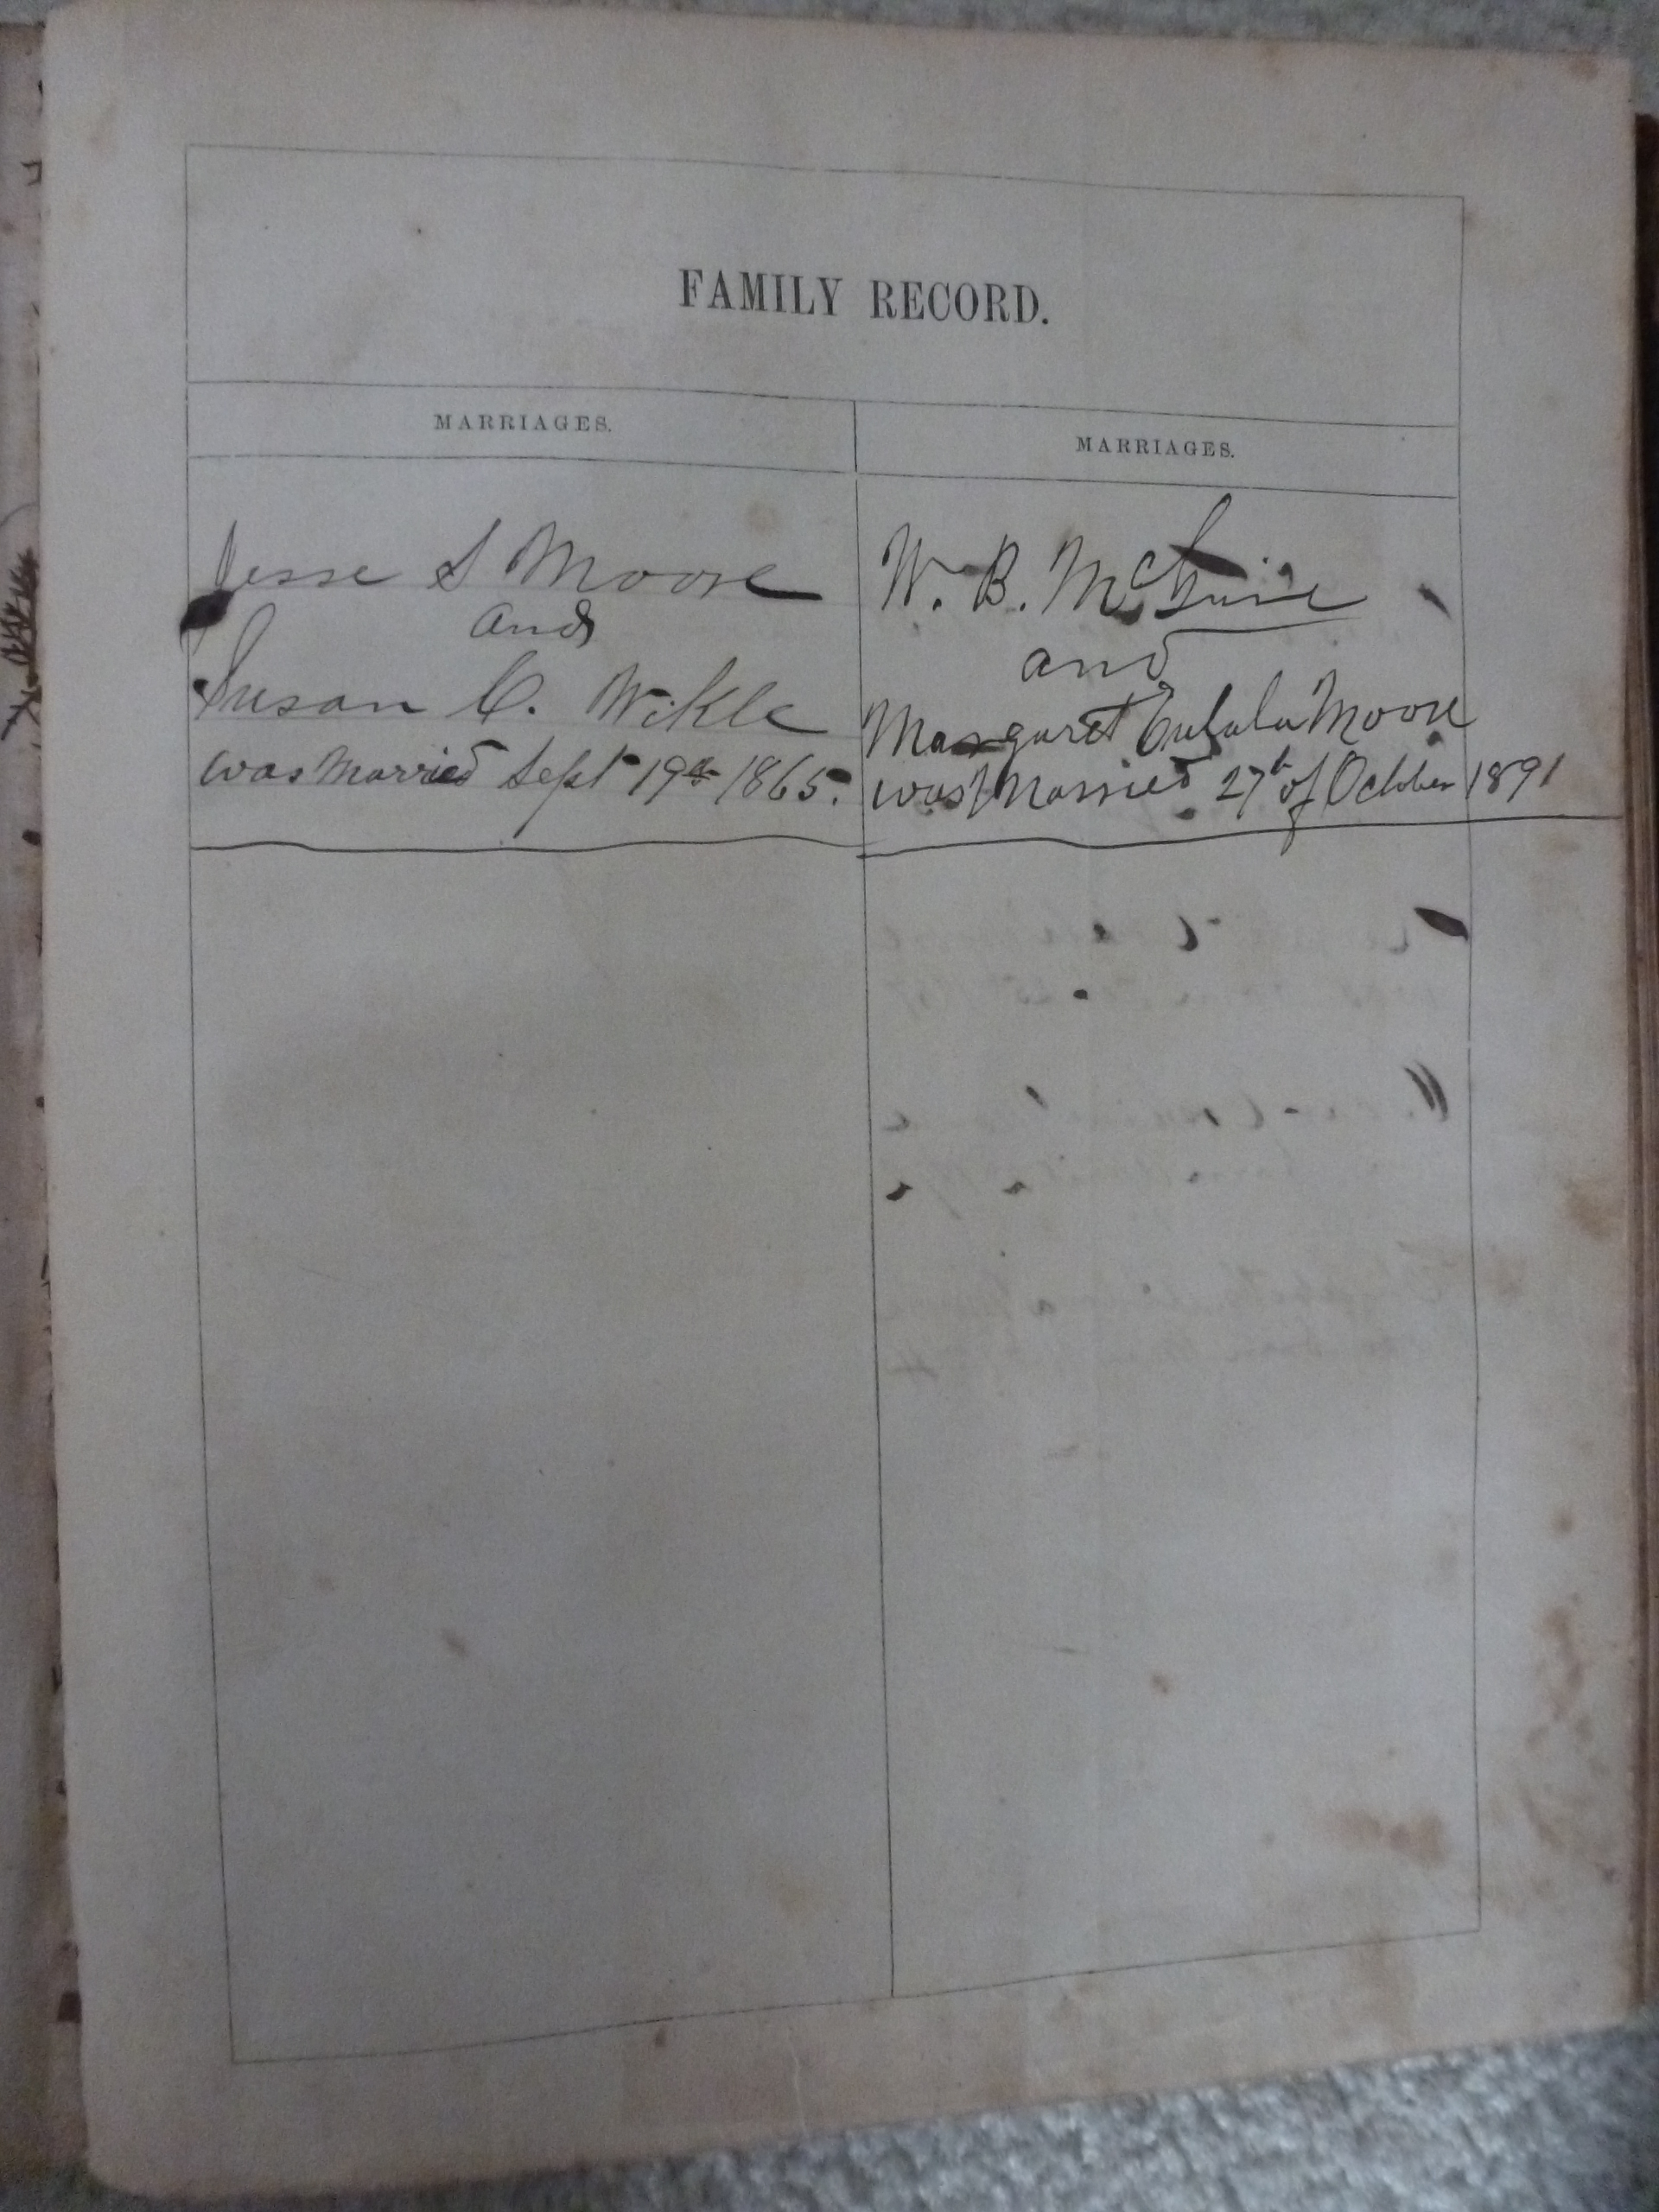 FAMILY RECORD.
MARRIAGES.
Jesse S Moore
and
Susan C. Wikle
was Married Sept 19th 1865.
MARRIAGES.
W. B. McGuire
and
Margaret Eulala Moore
was Married 27th of October 1891